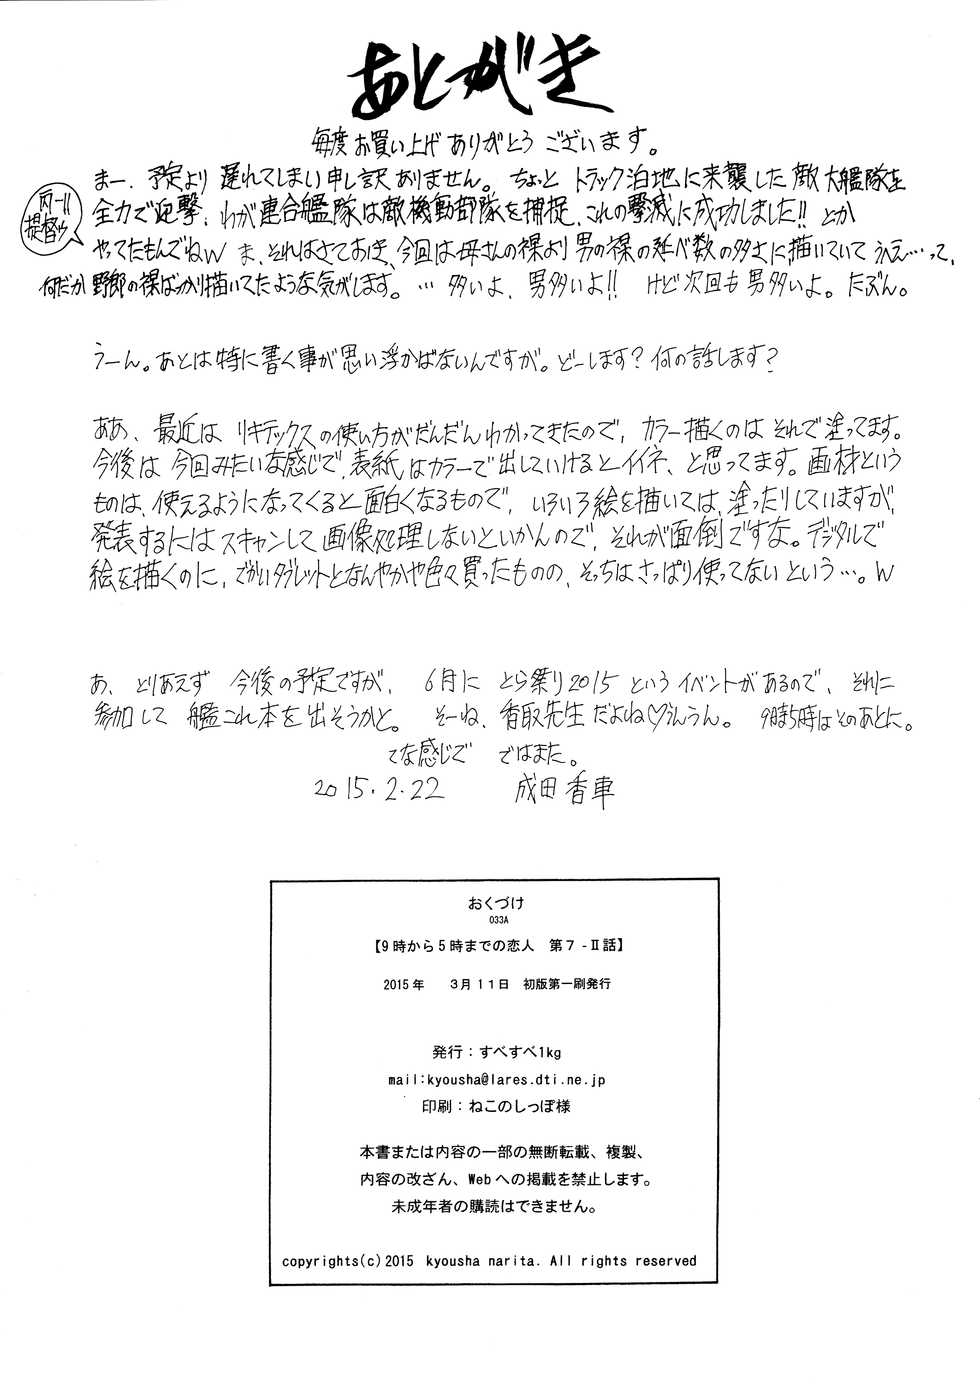 あとがき
毎度お買い上げありがとうございます。
まー、予定より遅れてしまい申し訳ありません。ちょっとトラック泊地に来襲した敵大艦隊を
全力で迎撃、わが連合艦隊は敵機動部隊を捕捉、これの撃滅に成功しました!! とか
提督ッ
やってたもんでねw ま、それはさておき、今回は母さんの裸より男の裸の延べ数の多さに描いていてうへえ…って、
何だか野郎の裸ばっかり描いてたような気がします。… 多いよ、男多いよ!! けど次回も男多いよ。たぶん。
うーん。あとは特に書く事が思い浮かばないんですが。どーします?何の話します?
ああ、最近はリキテックスの使い方がだんだんわかってきたので、カラー描くのはそれで塗ってます。
今後は今回みたいな感じで、表紙はカラーで出していけるとイイネ、と思ってます。画材という
ものは、使えるようになってくると面白くなるもので、いろいろ絵を描いては、塗ったりしていますが、
発表するにはスキャンして画像処理しないといかんので、それが面倒ですな。デジタルで
絵を描くのに、でかいタブレットとなんやかや色々買ったものの、そっちはさっぱり使ってないという…。w
あ、とりあえず 今後の予定ですが、6月に とら祭り2015 というイベントがあるので、それに
参加して 艦これ本を出そうかと。 そーね、香取先生だよね♡うんうん。 9時5時はそのあとに。
てな感じで ではまた。
2015.2.22 成田香車
おくづけ
033A
【9時から5時までの恋人 第7-Ⅱ話】
2015年 3月11日 初版第一刷発行
発行：すべすべ1kg
mail:kyousha@lares.dti.ne.jp
印刷：ねこのしっぽ様
本書または内容の一部の無断転載、複製、
内容の改ざん、Webへの掲載を禁止します。
未成年者の購読はできません。
copyrights(c)2015 kyousha narita. All rights reserved